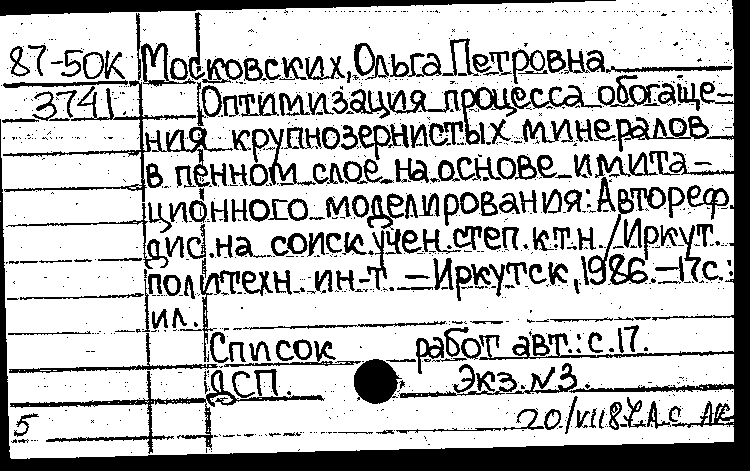 87-50К Московских, Ольга Петровна.
3741 Оптимизация процесса обогаще-
ния крупнозернистых минералов
в пенном слое на основе имита-
ционного моделирования: Автореф.
дис. на соиск. учен. степ. к.т.н. / Иркут.
политехн. ин-т. — Иркутск, 1986. — 17с.:
ил.
Список работ авт.: с. 17.
ДСП. Экз. N3.
5 20/VII 87.